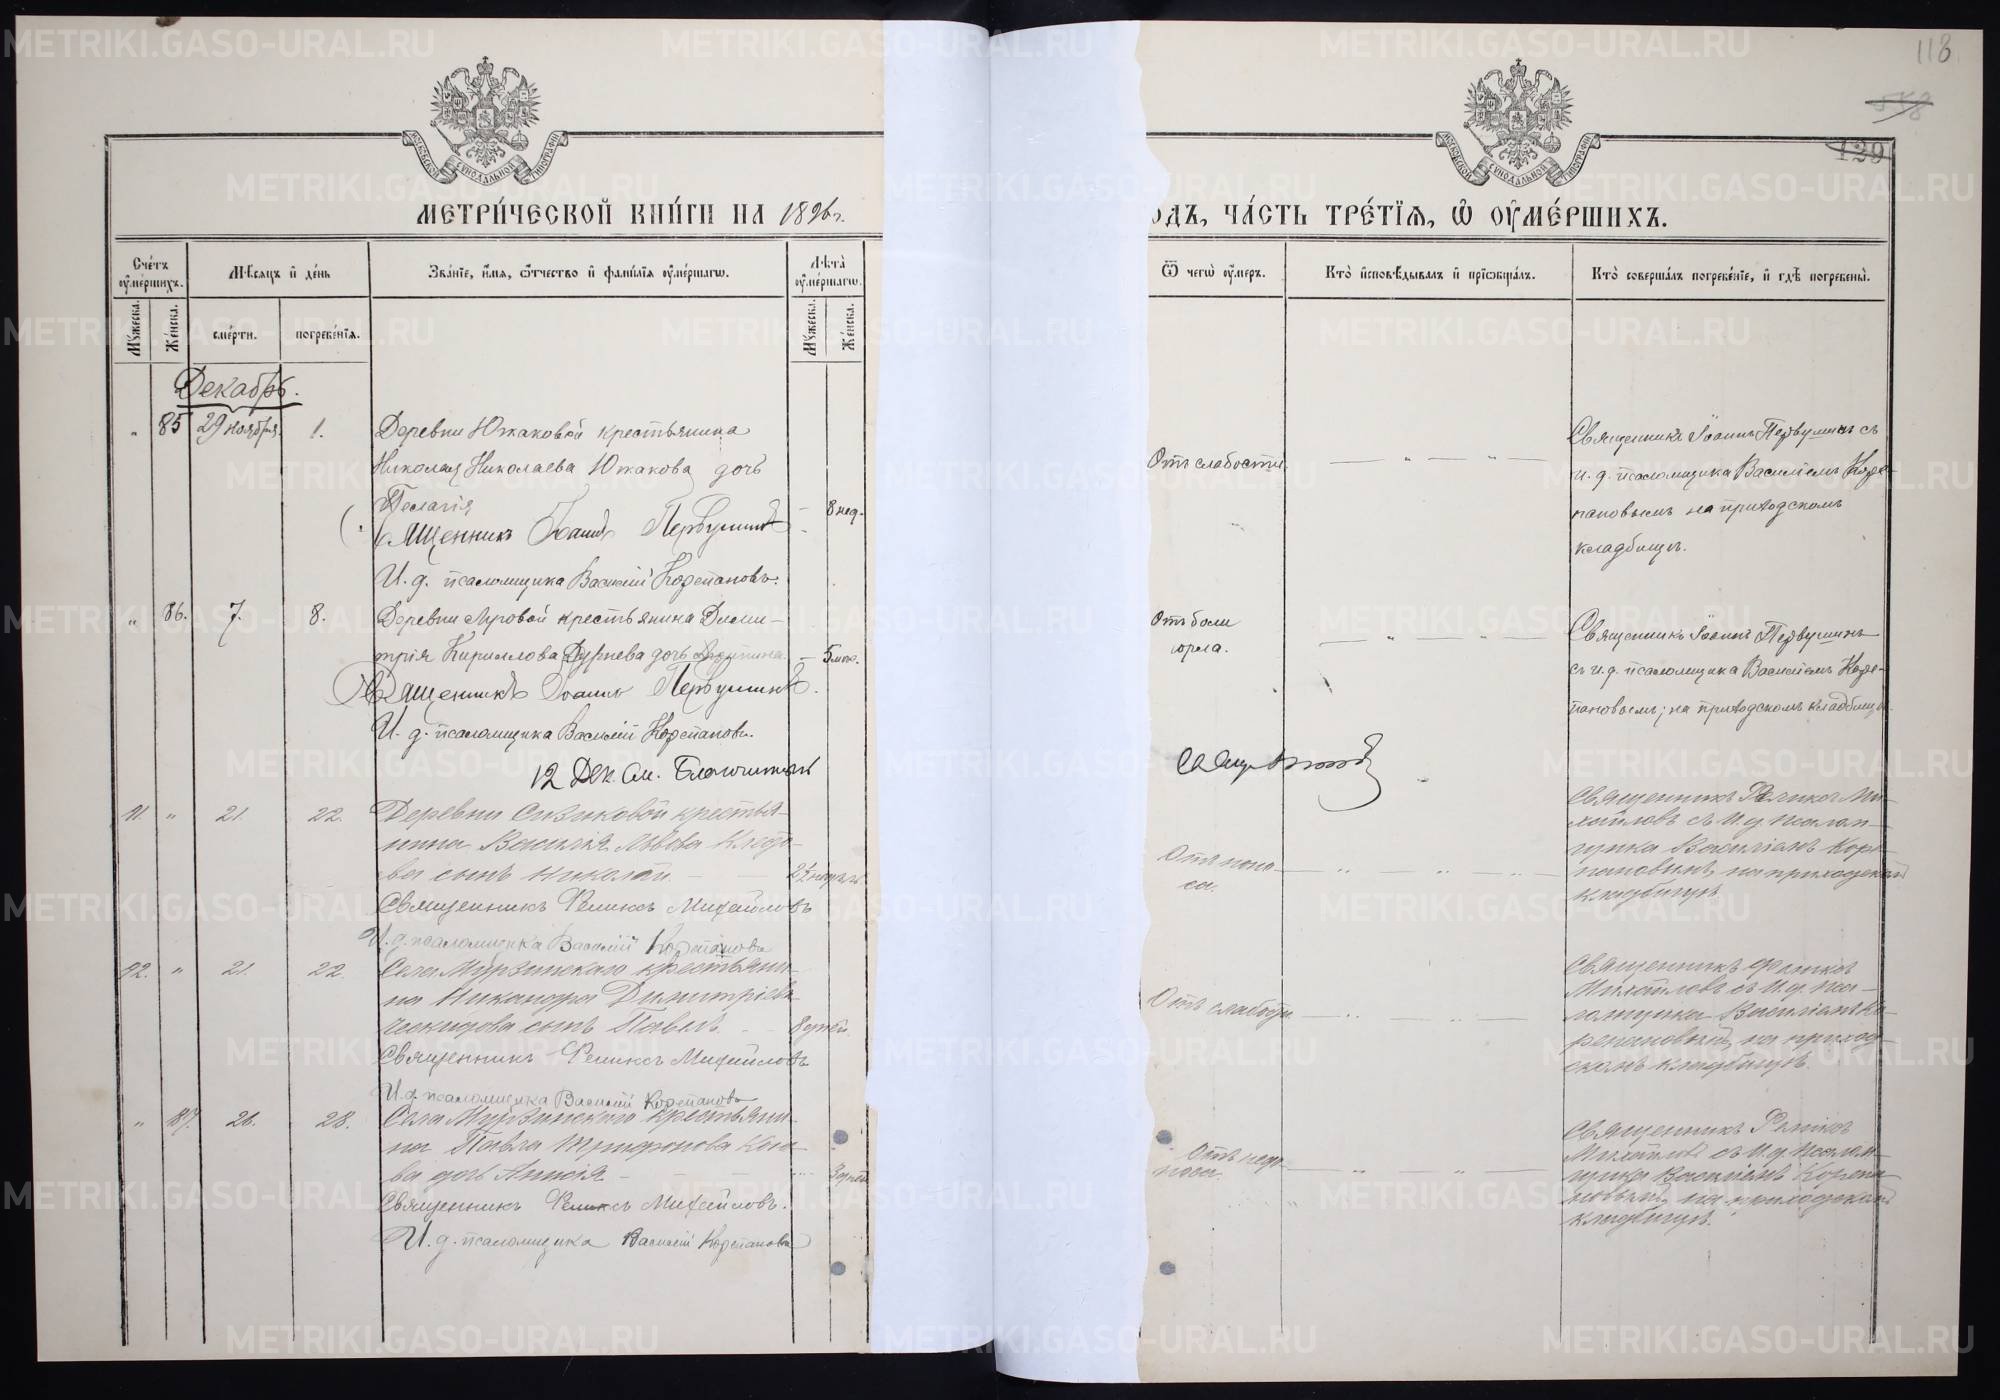 118
129
МОСКОВСКОЙ СѴНОДАЛЬНОЙ ТИПОГРАФІИ
МОСКОВСКОЙ СѴНОДАЛЬНОЙ ТИПОГРАФІИ
МЕТРИ́ЧЕСКОЙ КНИ́ГИ НА 1896 г.
ОДЪ, ЧА́СТЬ ТРЕ́ТІЯ, Ѽ ОУ҆МЕ́РШИХЪ.
Сче́тъ оу҆ме́ршихъ.
Мѣ́сяцъ и҆ де́нь
Зва́нїе, и҆́мя, ѻ҆́тчество и҆ фами́лїя оу҆ме́ршагѡ.
Лѣ́та оу҆ме́ршагѡ.
Ѿ чегѡ̀ оу҆́меръ.
Кто̀ и҆сповѣ́дывалъ и҆ прїѡбща́лъ.
Кто̀ соверша́лъ погребе́нїе, и҆ гдѣ̀ погребены̀.
Мꙋ́жеска.
Же́нска.
сме́рти.
погребе́нїя.
Мꙋ́жеска.
Же́нска.
Декабрь.
" 85 29 ноября. 1. Деревни Южаковой крестьянина
Николая Николаева Южакова дочь
Пелагія — 8 нед.
Священникъ Іоаннъ Первушинъ
И. д. псаломщика Василій Корепановъ.
Отъ слабости. — " — " —
Священникъ Іоаннъ Первушинъ съ
и. д. псаломщика Василіемъ Коре-
пановымъ на приходскомъ
кладбищѣ.
" 86. 7. 8. Деревни Луговой крестьянина Дими-
трія Кириллова дочь — 5 мѣс.
Священникъ Іоаннъ Первушинъ.
И. д. псаломщика Василій Корепановъ.
Отъ боли
горла. — " — " —
Священникъ Іоаннъ Первушинъ
съ и. д. псаломщика Василіемъ Коре-
пановымъ, на приходскомъ кладбищѣ.
12 Дек. См. Благочинный
Свящ.
91. " 21. 22. Деревни Сизиковой крестья-
нина Василія Львова
сынъ Николай — — 2½ недѣли
Священникъ Феликсъ Михайловъ
И. д. псаломщика Василій Корепановъ
Отъ поно-
са. — " — " — " —
Священникъ Феликсъ Ми-
хайловъ съ И. д. псалом-
щика Василіемъ Коре-
пановымъ, на приходскомъ
кладбищѣ.
92. " 21. 22. Села Мурзинскаго крестьяни-
на Никандра Димитріева
сынъ Павелъ. — — 8 дней.
Священникъ Феликсъ Михайловъ
И. д. псаломщика Василій Корепановъ
Отъ слабости. — " — " —
Священникъ Феликсъ
Михайловъ съ И. д. пса-
ломщика Василіемъ Ко-
репановымъ, на приход-
скомъ кладбищѣ.
" 87. 26. 28. Села Мурзинскаго крестьяни-
на Павла Трифонова
дочь Анисія — 3 дней
Священникъ Феликсъ Михайловъ.
И. д. псаломщика Василій Корепановъ
Отъ недо-
носа. — " — " —
Священникъ Феликсъ
Михайловъ съ И. д. псалом-
щика Василіемъ Корепа-
новымъ, на приходскомъ
кладбищѣ.
METRIKI.GASO-URAL.RU